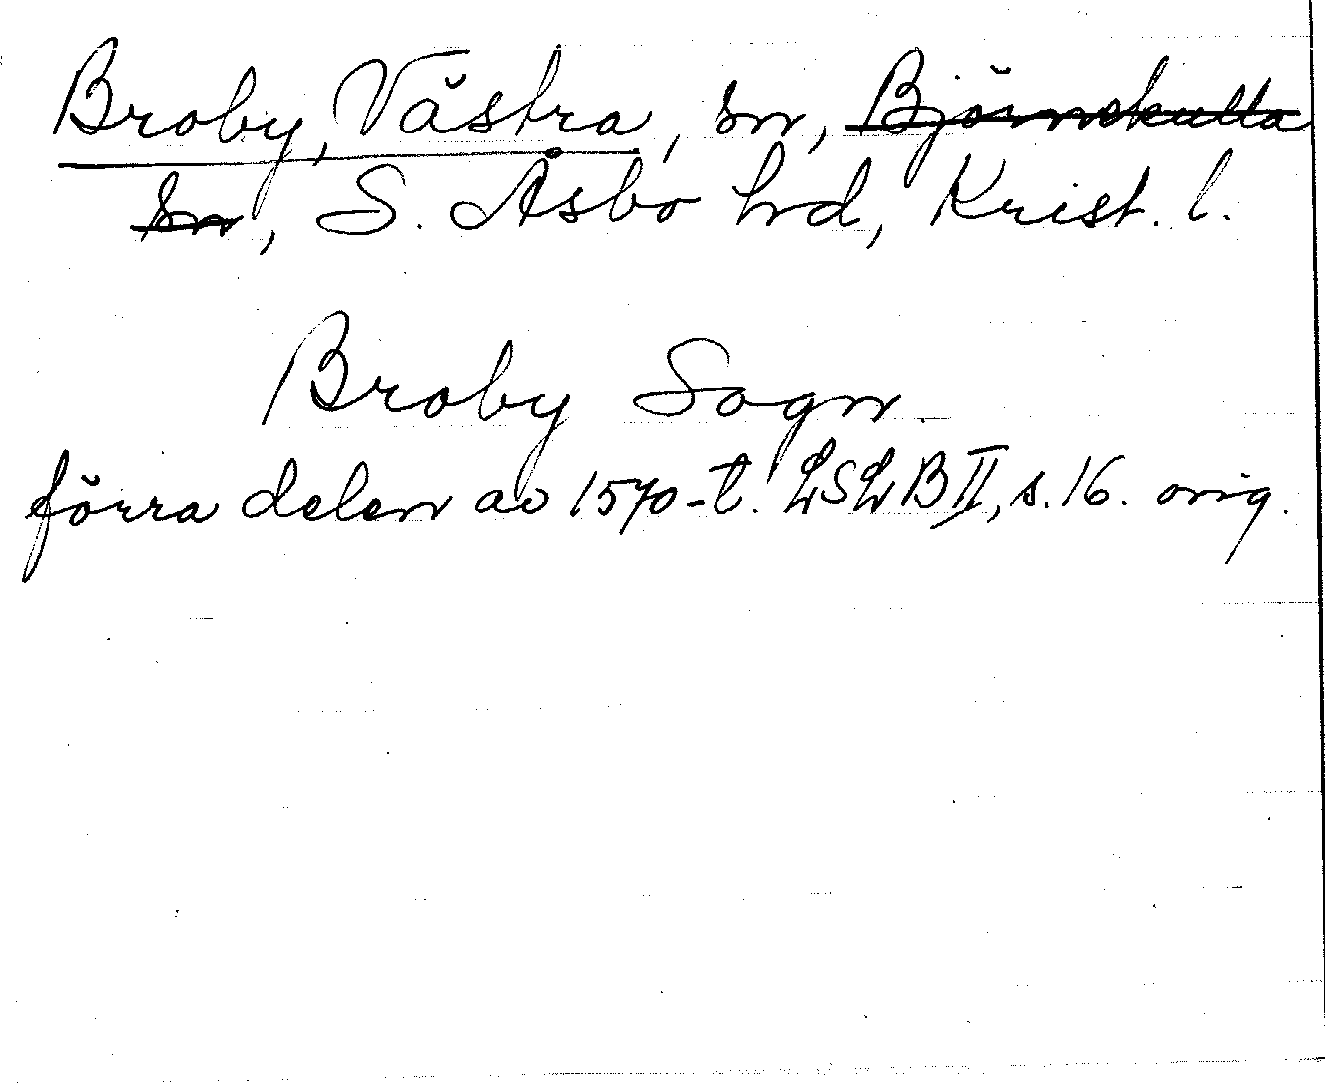 Broby, Västra, sn, ~~Björnekulla~~
~~sn~~, S. Åsbo hd, Krist. l.
Broby Sogn
förra delen av 1570-t. LSLB II, s. 16. orig.